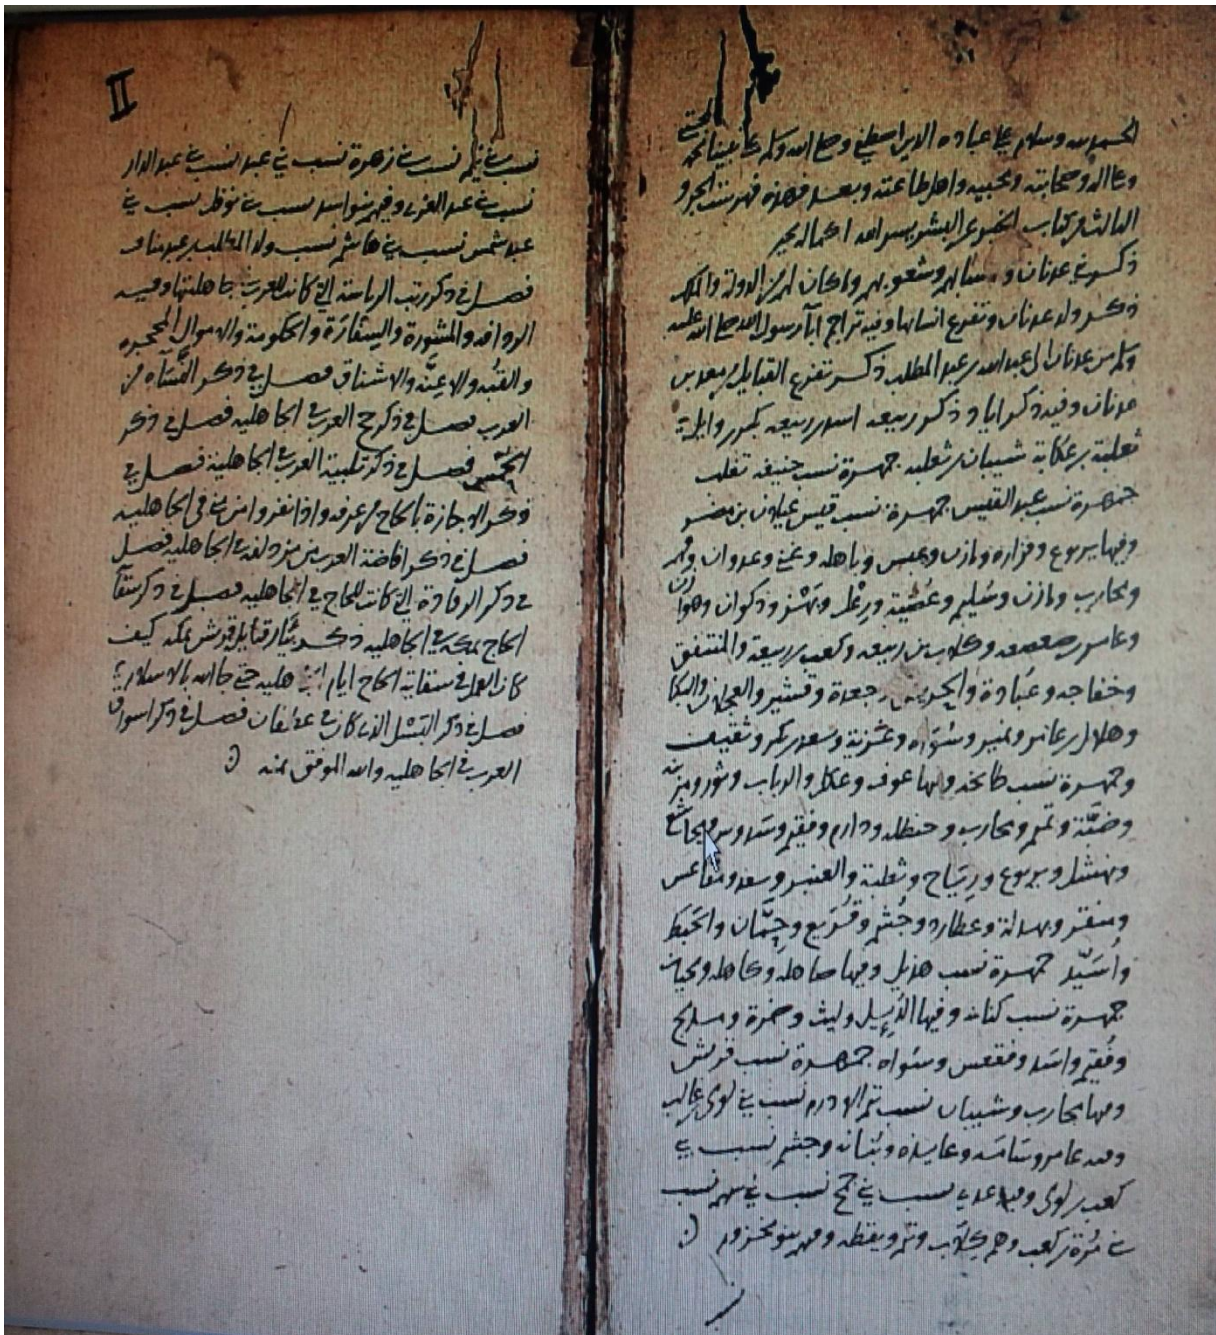 الحمد لله وسلام على عباده الذين اصطفى وصلى الله وسلم على نبينا محمد المجتبى
وعلى اله وصحابته ومحبيه واهل طاعته وبعد فهذه فهرست الجزو
الثالث من كتاب الخبر عن البشر يسر الله اكماله بخير
ذكر بنى عدنان وشعوبهم وما كان لهم من الدولة والملك
ذكر ولد عدنان وتفرع انسابها وفيه تراجم اباء رسول الله صلى الله عليه
وسلم من عدنان الى عبد الله بن عبد المطلب ذكر تفرع القبايل من معد بن
عدنان وفيه ذكر اياد وذكر ربيعه اسد بن ربيعه بكر بن وايل
ثعلبة بن عكابة شيبان بن ثعلبه جمهرة نسب حنيفه تغلب
جمهرة نسب عبد القيس جمهرة نسب قيس عيلان بن مضر
وفيها يربوع وفزاره ومازن وعبس وباهله وغنى وعدوان وفهم
ومحارب ومازن وسُليم وعُصَيّة ورِعْل وبَهْز وذكوان وهوازن
وعامر بن صعصعه وكلاب بن ربيعه وكعب بن ربيعة والمنتفق
وخفاجه وعُبادة والحريش وجعدة وقشير والعجلان والبكا
وهلال بن عامر ونمير وسُوَاه وغَزية وسعد بن بكر وثقيف
وجمهرة نسب طابخه وفيها عوف وعكل والرباب وثور ومزينه
وضَبّة وتميم ومحارب وحنظله ودارم وفُقيم وسدوس ومجاشع
ونهشل ويربوع ورِيَاح وثعلبة والعنبر وسعد ومقاعس
ومنقر وبهدلة وعطارد وجُشم وقُرَيع وحِمّان والحَبَط
واُسَيّد جمهرة نسب هذيل وفيها صاهله وكاهله ولحيان
جمهرة نسب كنانه وفيها الدُّيِل وليث وضمرة ومدلج
وفُقَيم واسد وفقعس وسُواه جمهرة نسب قريش
وفيها محارب وشيبان نسب تيم الادرم نسب بني لوى بن غالب
وفيه عامر وسَامَه وعايذه وبُنَانه وجشم نسب بني
كعب بن لوى وفيه عدى نسب بني جمح نسب بني سهم نسب
بني مُرّة بن كعب وهم كلاب وتيم ويقظه وفيهم بنو مخزوم
II
نسب بني تيم نسب بني زهرة نسب بني عبد نسب بني عبد الدار
نسب بني عبد العزى وفيهم بنو اسد نسب بني نوفل نسب بني
عبد شمس نسب بني هاشم نسب ولد المطلب بن عبد مناف
فصل في ذكر رتب الرياسة التي كانت للعرب بجاهليتها وفيه
الروافد والمشورة والسِفَارَة والحكومة والاموال المحجره
والقُبّه والاعِنّه والاشناق فصل في ذكر النَّسَأه من
العرب فصل في ذكر حج العرب في الجاهليه فصل في ذكر
الحُمْس فصل في ذكر تلبية العرب في الجاهلية فصل في
ذكر الاجازة بالحاج من عرفه واذا نفروا من منى في الجاهليه
فصل في ذكر افاضة العرب من مزدلفه في الجاهليه فصل
في ذكر الرفادة التي كانت للحاج في الجاهليه فصل في ذكر سقاية
الحاج بمكه في الجاهليه ذكر بئار قبايل قريش بمكه كيف
كان العمل في سقاية الحاج ايام الجاهليه حتى جا الله بالاسلام
فصل في ذكر البَسْل الذي كان في غطفان فصل في ذكر اسواق
العرب في الجاهليه والله الموفق بمنه